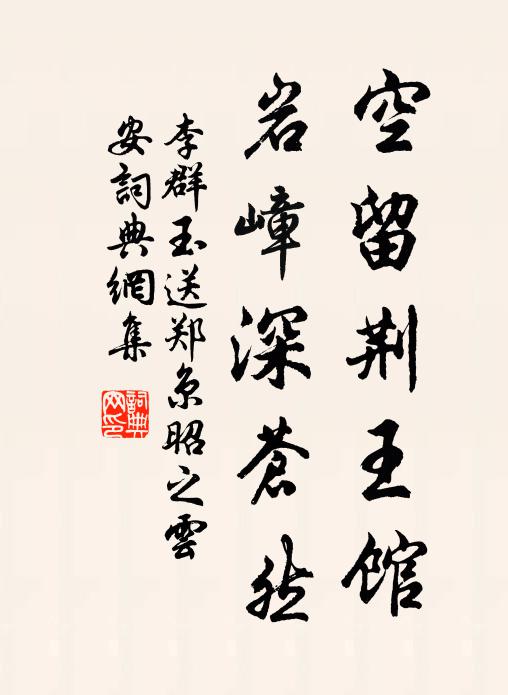 空留荆王馆
岩嶂深苍然
李群玉送郑京昭之雲
安词典網集
詞典
网印